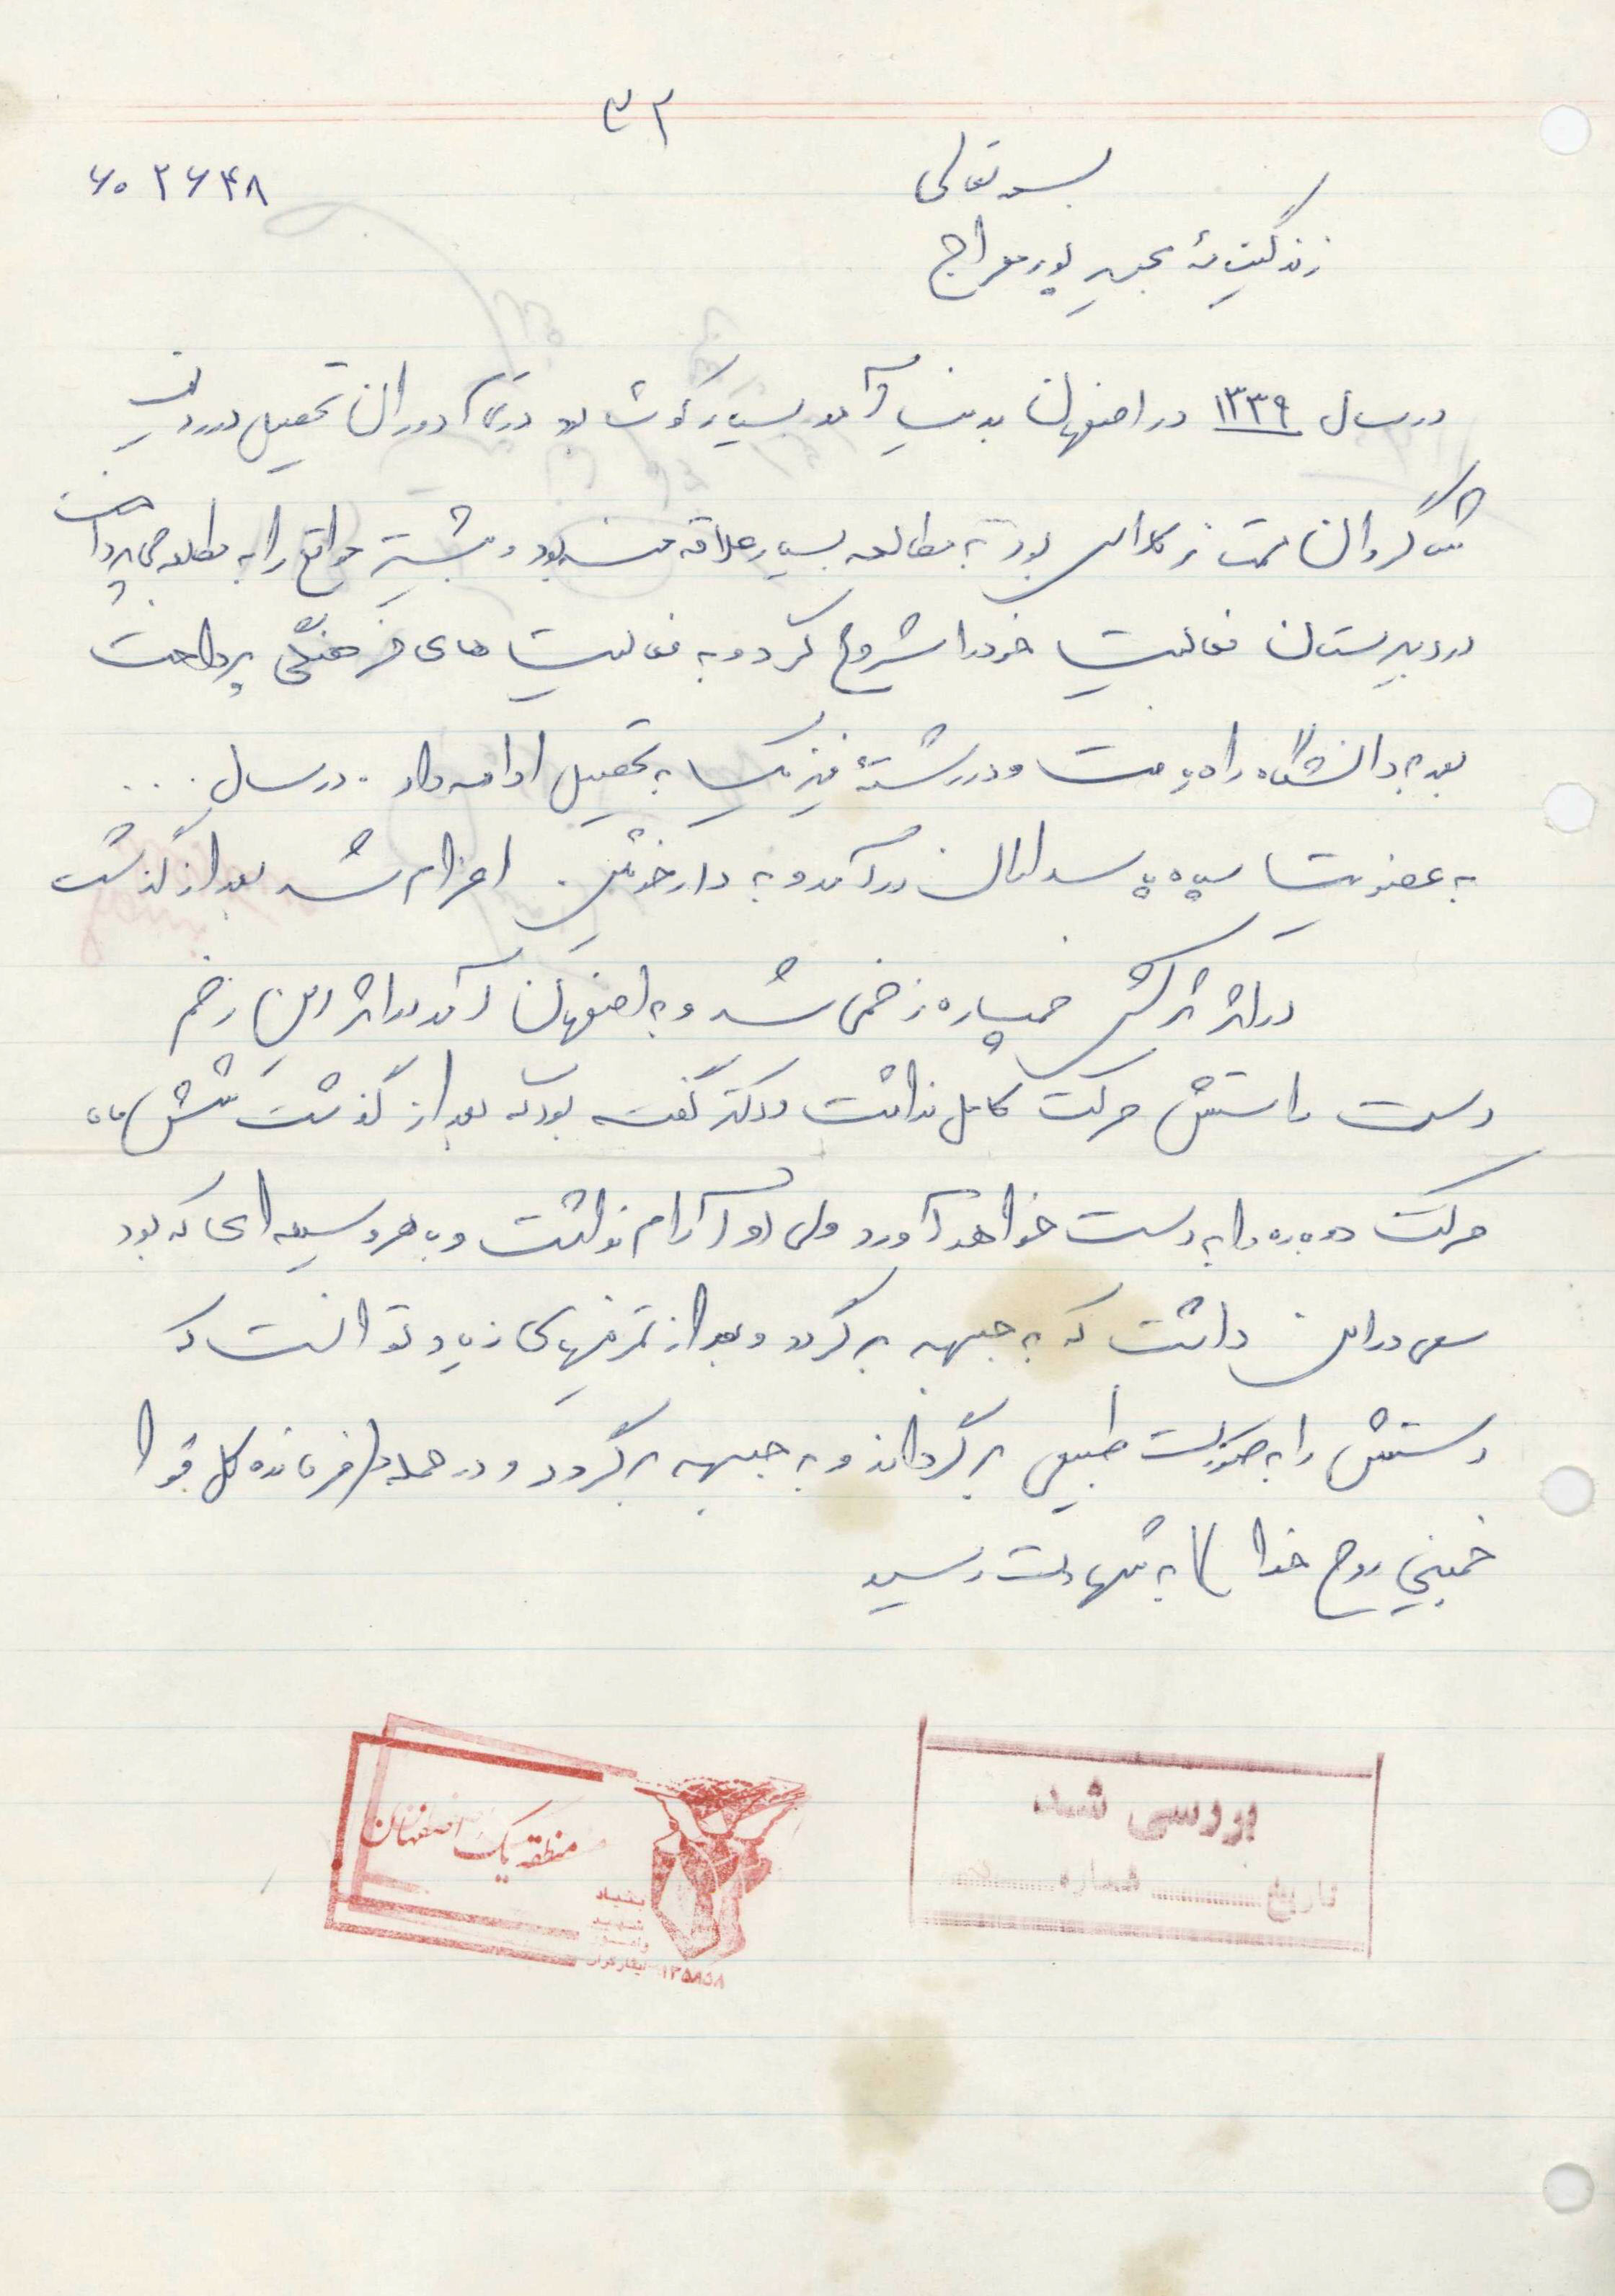 ۳۲
۶۰۲۶۴۸
بسمه تعالی
زندگینامهٔ مجید پورمعراج
در سال ۱۳۳۹ در اصفهان بدنیا آمد بسیار کوشا بود در تمام دوران تحصیل در ردیف
شاگردان ممتاز کلاس بود به مطالعه بسیار علاقه‌مند بود و بیشتر مواقع را به مطالعه می‌پرداخت
در دبیرستان فعالیت خود را شروع کرد و به فعالیت های فرهنگی پرداخت
بعد به دانشگاه راه یافت و در رشتهٔ فیزیک به تحصیل ادامه داد . در سال ...
به عضویت سپاه پاسداران درآمد و به دارخوئین اعزام شد بعد از گذشت
در اثر ترکش خمپاره زخمی شد و به اصفهان آمد در اثر این زخم
دست راستش حرکت کامل نداشت و دکتر گفته بود که بعد از گذشت شش ماه
حرکت دوباره را به دست خواهد آورد ولی او آرام نداشت و به هر وسیله ای که بود
سعی در این داشت که به جبهه برگردد و بعد از تمرینهای زیاد توانست که
دستش را به صورت طبیعی برگرداند و به جبهه برگردد و در حمله (فرمانده کل قوا
خمینی روح خدا) به شهادت رسید
بررسی شد
تاریخ ........ شماره ........
منطقه یک اصفهان
بنیاد
شهید
و امور
ایثارگران